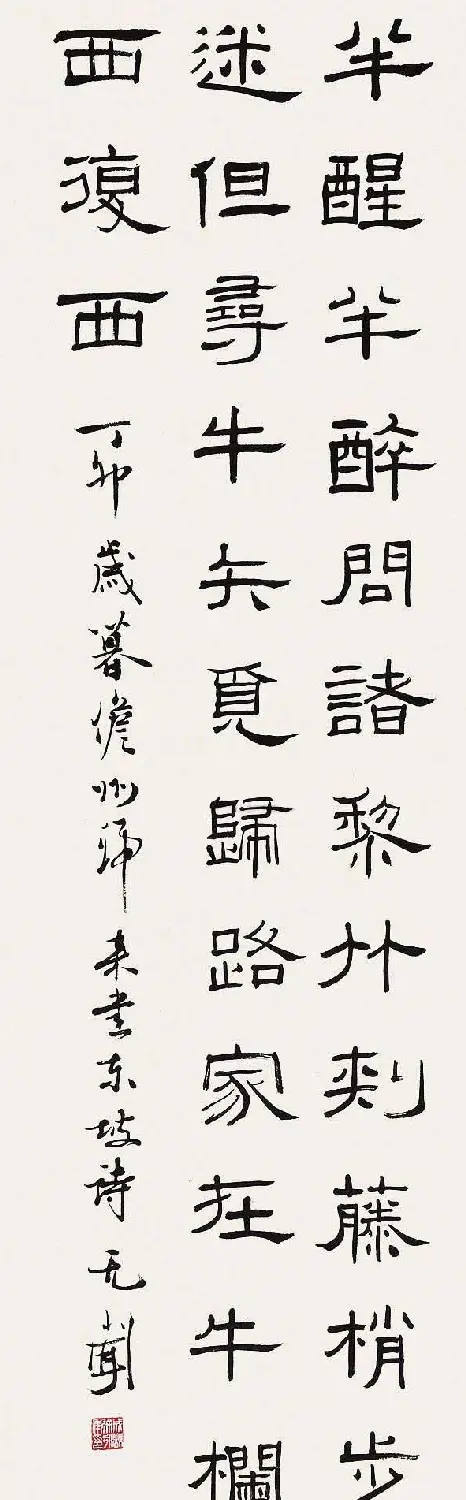 半醒半醉問諸黎竹刾藤梢步
迷但尋牛矢覓歸路家在牛欄
西復西 丁卯歲暮儋州歸来書东坡诗 无聞